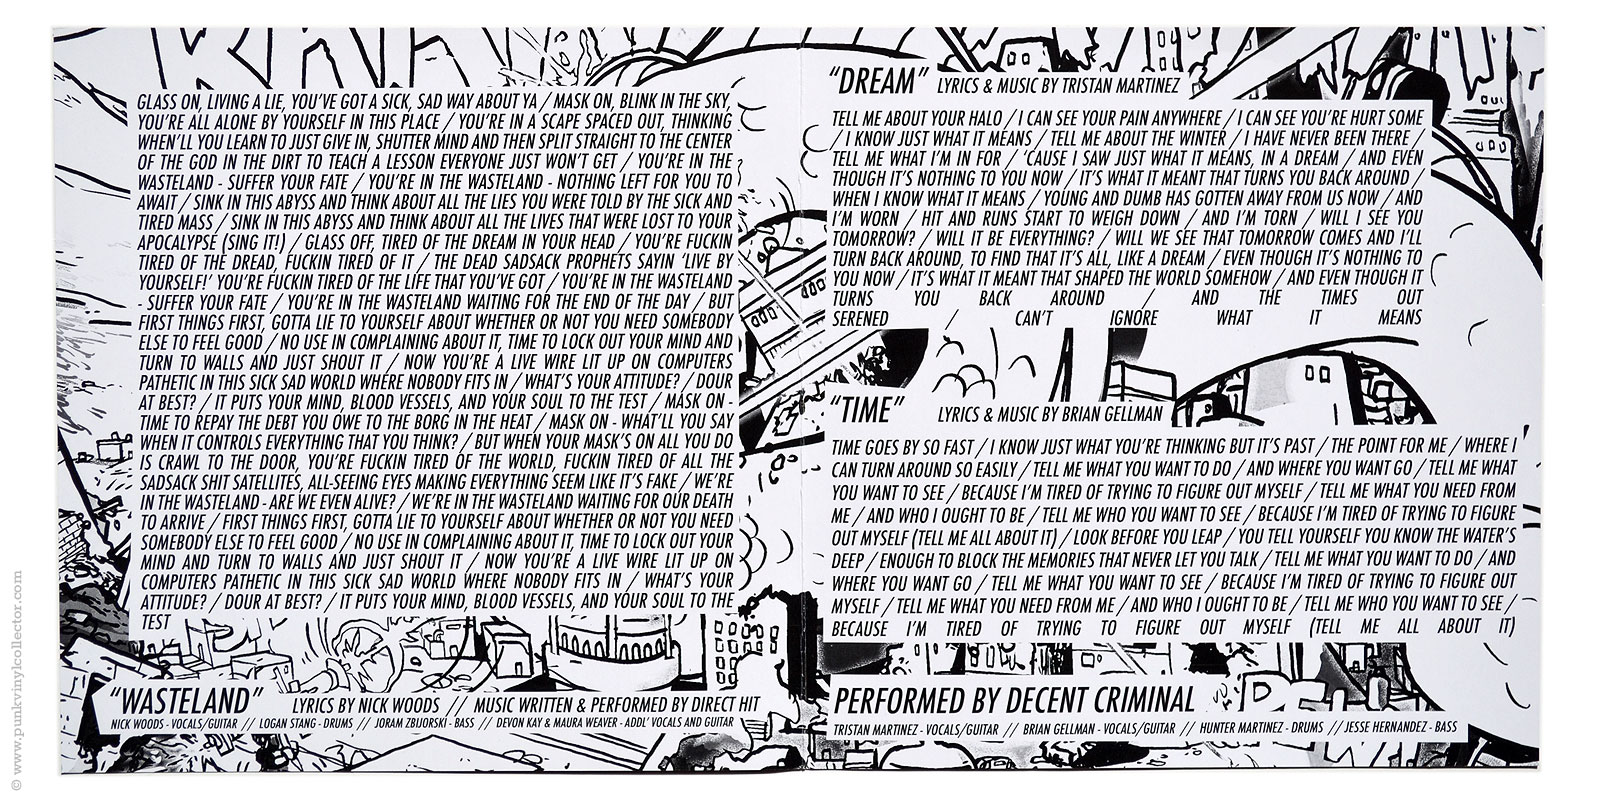 GLASS ON, LIVING A LIE, YOU'VE GOT A SICK, SAD WAY ABOUT YA / MASK ON, BLINK IN THE SKY,
YOU'RE ALL ALONE BY YOURSELF IN THIS PLACE / YOU'RE IN A SCAPE SPACED OUT, THINKING
WHEN'LL YOU LEARN TO JUST GIVE IN, SHUTTER MIND AND THEN SPLIT STRAIGHT TO THE CENTER
OF THE GOD IN THE DIRT TO TEACH A LESSON EVERYONE JUST WON'T GET / YOU'RE IN THE
WASTELAND - SUFFER YOUR FATE / YOU'RE IN THE WASTELAND - NOTHING LEFT FOR YOU TO
AWAIT / SINK IN THIS ABYSS AND THINK ABOUT ALL THE LIES YOU WERE TOLD BY THE SICK AND
TIRED MASS / SINK IN THIS ABYSS AND THINK ABOUT ALL THE LIVES THAT WERE LOST TO YOUR
APOCALYPSE (SING IT!) / GLASS OFF, TIRED OF THE DREAM IN YOUR HEAD / YOU'RE FUCKIN
TIRED OF THE DREAD, FUCKIN TIRED OF IT / THE DEAD SADSACK PROPHETS SAYIN 'LIVE BY
YOURSELF!' YOU'RE FUCKIN TIRED OF THE LIFE THAT YOU'VE GOT / YOU'RE IN THE WASTELAND
- SUFFER YOUR FATE / YOU'RE IN THE WASTELAND WAITING FOR THE END OF THE DAY / BUT
FIRST THINGS FIRST, GOTTA LIE TO YOURSELF ABOUT WHETHER OR NOT YOU NEED SOMEBODY
ELSE TO FEEL GOOD / NO USE IN COMPLAINING ABOUT IT, TIME TO LOCK OUT YOUR MIND AND
TURN TO WALLS AND JUST SHOUT IT / NOW YOU'RE A LIVE WIRE LIT UP ON COMPUTERS
PATHETIC IN THIS SICK SAD WORLD WHERE NOBODY FITS IN / WHAT'S YOUR ATTITUDE? / DOUR
AT BEST? / IT PUTS YOUR MIND, BLOOD VESSELS, AND YOUR SOUL TO THE TEST / MASK ON -
TIME TO REPAY THE DEBT YOU OWE TO THE BORG IN THE HEAT / MASK ON - WHAT'LL YOU SAY
WHEN IT CONTROLS EVERYTHING THAT YOU THINK? / BUT WHEN YOUR MASK'S ON ALL YOU DO
IS CRAWL TO THE DOOR, YOU'RE FUCKIN TIRED OF THE WORLD, FUCKIN TIRED OF ALL THE
SADSACK SHIT SATELLITES, ALL-SEEING EYES MAKING EVERYTHING SEEM LIKE IT'S FAKE / WE'RE
IN THE WASTELAND - ARE WE EVEN ALIVE? / WE'RE IN THE WASTELAND WAITING FOR OUR DEATH
TO ARRIVE / FIRST THINGS FIRST, GOTTA LIE TO YOURSELF ABOUT WHETHER OR NOT YOU NEED
SOMEBODY ELSE TO FEEL GOOD / NO USE IN COMPLAINING ABOUT IT, TIME TO LOCK OUT YOUR
MIND AND TURN TO WALLS AND JUST SHOUT IT / NOW YOU'RE A LIVE WIRE LIT UP ON
COMPUTERS PATHETIC IN THIS SICK SAD WORLD WHERE NOBODY FITS IN / WHAT'S YOUR
ATTITUDE? / DOUR AT BEST? / IT PUTS YOUR MIND, BLOOD VESSELS, AND YOUR SOUL TO THE
TEST
"WASTELAND" LYRICS BY NICK WOODS // MUSIC WRITTEN & PERFORMED BY DIRECT HIT
NICK WOODS - VOCALS/GUITAR // LOGAN STANG - DRUMS // JORAM ZBIJORSKI - BASS // DEVON KAY & MAURA WEAVER - ADDL' VOCALS AND GUITAR
"DREAM" LYRICS & MUSIC BY TRISTAN MARTINEZ
TELL ME ABOUT YOUR HALO / I CAN SEE YOUR PAIN ANYWHERE / I CAN SEE YOU'RE HURT SOME
/ I KNOW JUST WHAT IT MEANS / TELL ME ABOUT THE WINTER / I HAVE NEVER BEEN THERE /
TELL ME WHAT I'M IN FOR / 'CAUSE I SAW JUST WHAT IT MEANS, IN A DREAM / AND EVEN
THOUGH IT'S NOTHING TO YOU NOW / IT'S WHAT IT MEANT THAT TURNS YOU BACK AROUND /
WHEN I KNOW WHAT IT MEANS / YOUNG AND DUMB HAS GOTTEN AWAY FROM US NOW / AND
I'M WORN / HIT AND RUNS START TO WEIGH DOWN / AND I'M TORN / WILL I SEE YOU
TOMORROW? / WILL IT BE EVERYTHING? / WILL WE SEE THAT TOMORROW COMES AND I'LL
TURN BACK AROUND, TO FIND THAT IT'S ALL, LIKE A DREAM / EVEN THOUGH IT'S NOTHING TO
YOU NOW / IT'S WHAT IT MEANT THAT SHAPED THE WORLD SOMEHOW / AND EVEN THOUGH IT
TURNS YOU BACK AROUND / AND THE TIMES OUT
SERENED / CAN'T IGNORE WHAT IT MEANS
"TIME" LYRICS & MUSIC BY BRIAN GELLMAN
TIME GOES BY SO FAST / I KNOW JUST WHAT YOU'RE THINKING BUT IT'S PAST / THE POINT FOR ME / WHERE I
CAN TURN AROUND SO EASILY / TELL ME WHAT YOU WANT TO DO / AND WHERE YOU WANT GO / TELL ME WHAT
YOU WANT TO SEE / BECAUSE I'M TIRED OF TRYING TO FIGURE OUT MYSELF / TELL ME WHAT YOU NEED FROM
ME / AND WHO I OUGHT TO BE / TELL ME WHO YOU WANT TO SEE / BECAUSE I'M TIRED OF TRYING TO FIGURE
OUT MYSELF (TELL ME ALL ABOUT IT) / LOOK BEFORE YOU LEAP / YOU TELL YOURSELF YOU KNOW THE WATER'S
DEEP / ENOUGH TO BLOCK THE MEMORIES THAT NEVER LET YOU TALK / TELL ME WHAT YOU WANT TO DO / AND
WHERE YOU WANT GO / TELL ME WHAT YOU WANT TO SEE / BECAUSE I'M TIRED OF TRYING TO FIGURE OUT
MYSELF / TELL ME WHAT YOU NEED FROM ME / AND WHO I OUGHT TO BE / TELL ME WHO YOU WANT TO SEE /
BECAUSE I'M TIRED OF TRYING TO FIGURE OUT MYSELF (TELL ME ALL ABOUT IT)
PERFORMED BY DECENT CRIMINAL
TRISTAN MARTINEZ - VOCALS/GUITAR // BRIAN GELLMAN - VOCALS/GUITAR // HUNTER MARTINEZ - DRUMS // JESSE HERNANDEZ - BASS
© www.punkvinylcollector.com